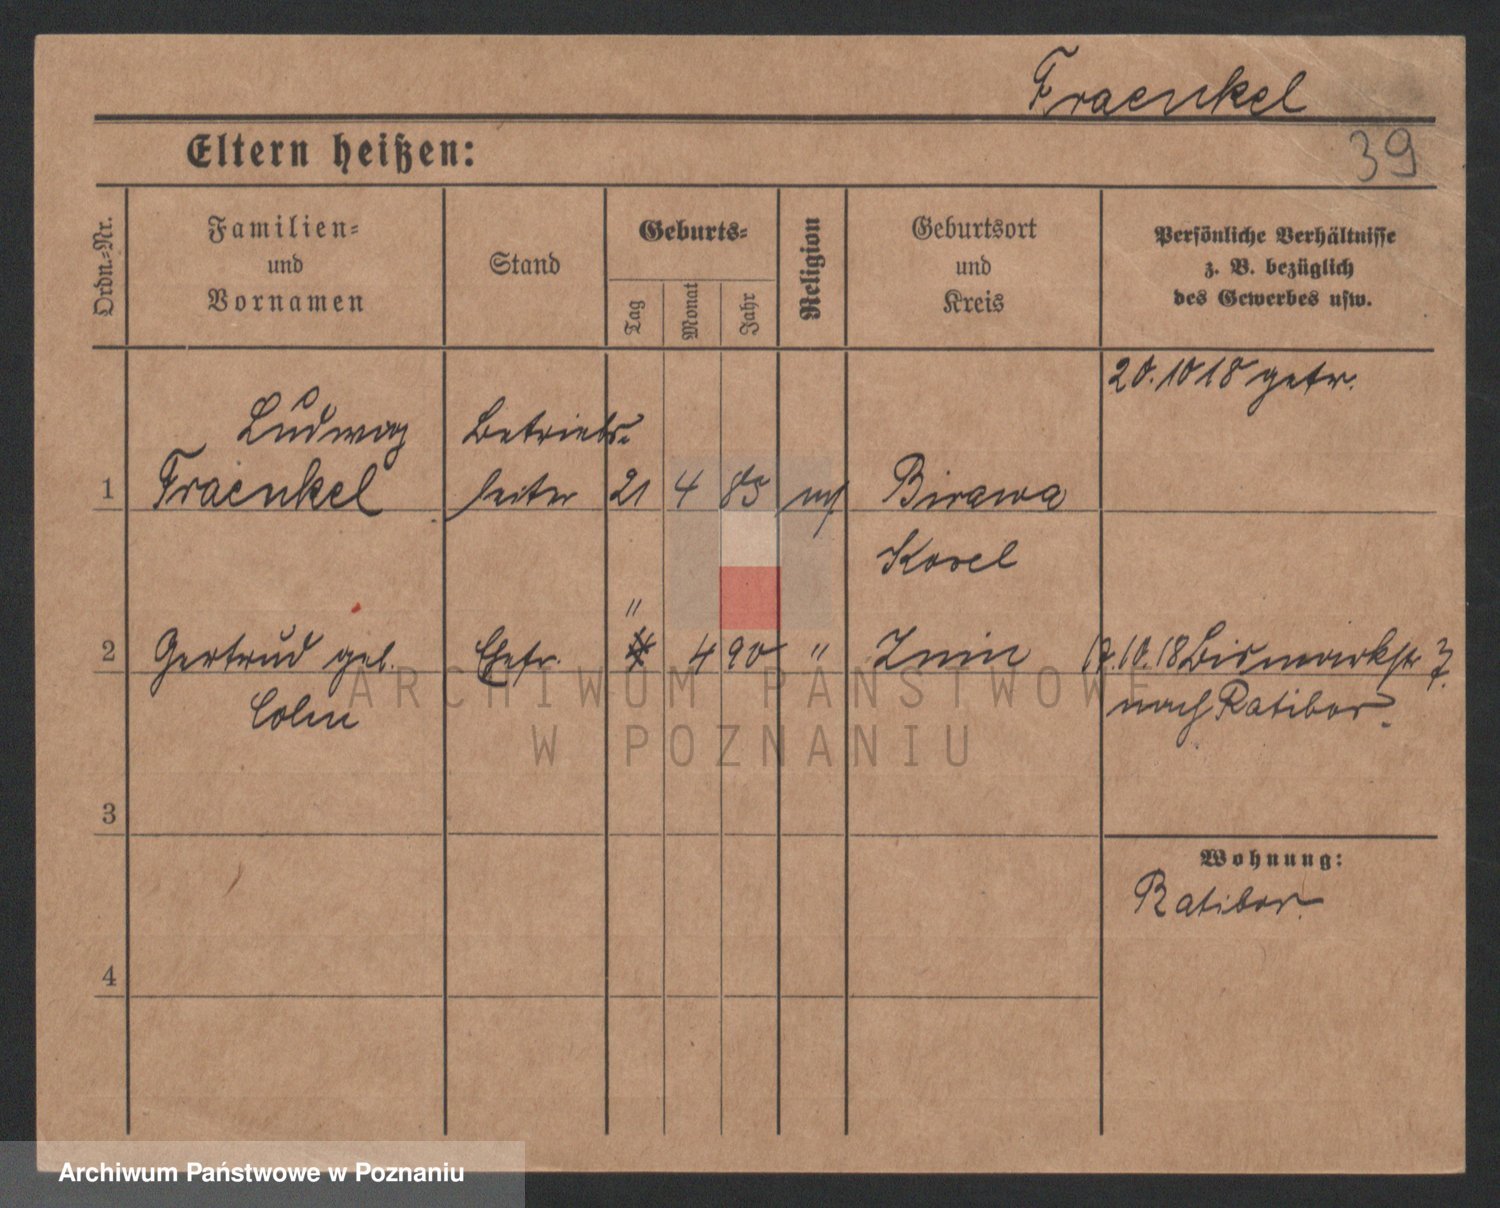 Fraenkel
39
Eltern heißen:
Ordn.-Nr.
Familien-
und
Vornamen
Stand
Geburts-
Tag
Monat
Jahr
Religion
Geburtsort
und
Kreis
Persönliche Verhältnisse
z. B. bezüglich
des Gewerbes usw.
20.10 18 getr.
Ludwig Betriebs-
1 Fraenkel leiter 21 4 85 Birawa
Kosel
"
2 Gertrud geb. Ehefr. 4 90 " Znin 10.18 Bismarkstr 7.
Cohn nach Ratibor.
3
Wohnung:
Ratibor.
4
ARCHIWUM PAŃSTWOWE
W POZNANIU
Archiwum Państwowe w Poznaniu